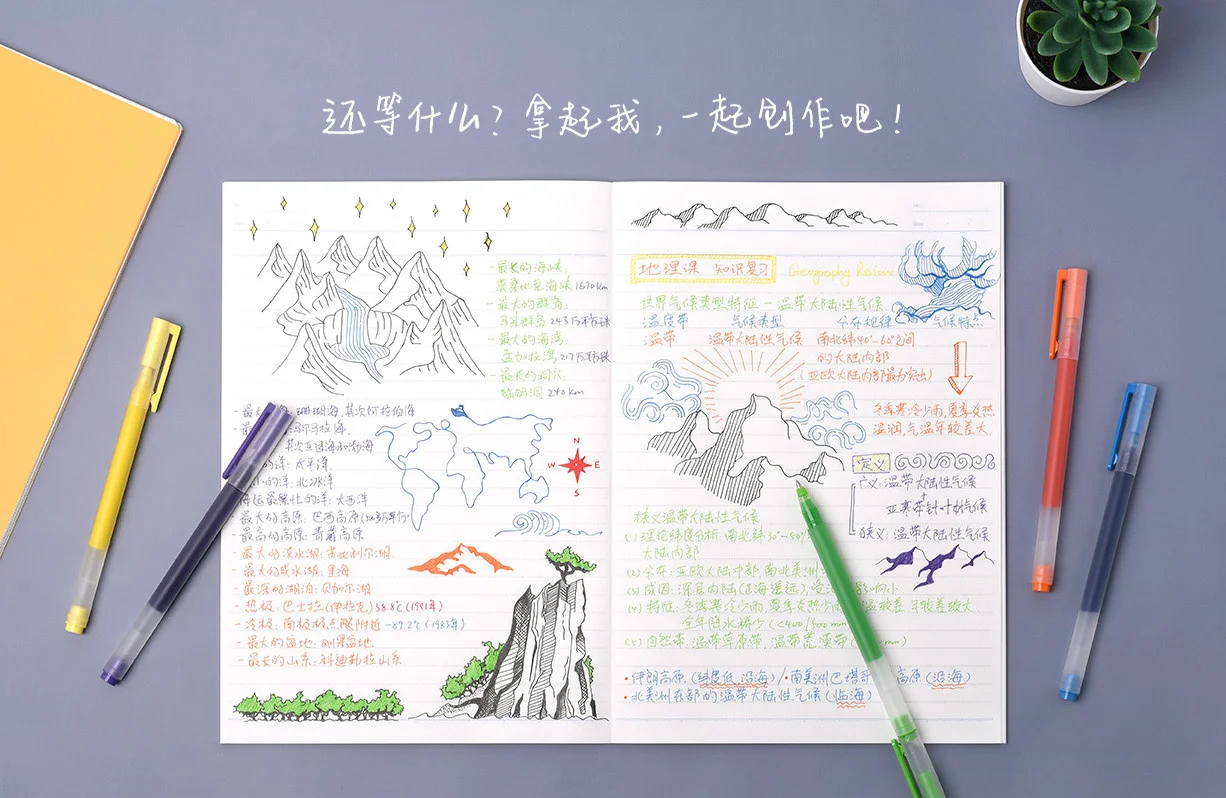 还等什么？拿起我，一起创作吧！
-最长的海峡：
莫桑比克海峡1670km
-最大的群岛：
马来群岛243万平方
-最大的海湾：
孟加拉湾217万平方
-最长的洞穴：
240km
珊瑚海，其次阿拉伯海
其次亚速海和渤海
的洋：太平洋
小的洋：北冰洋
的洋：大西洋
-最大的高原：巴西高原
-最高的高原：青藏高原
-最大的淡水湖：苏必利尔湖
-最大的咸水湖：里海
-最深的湖泊：贝加尔湖
-热极：巴士拉（伊拉克）58.8℃（1921年）
-冷极：南极极点附近-89.2℃（1983年）
-最大的盆地：刚果盆地
-最长的山系：科迪勒拉山系
N
W E
S
地理课 知识复习 Geography Review
世界气候类型特征-温带大陆性气候
温度带 气候类型 分布规律 气候特点
温带 温带大陆性气候 南北纬40°-60°之间
的大陆内部
（亚欧大陆内部最为突出）
冬季寒冷少雨，夏季炎热
温润，气温年较差大
定义
广义：温带大陆性气候
亚寒带针叶林气候
狭义：温带大陆性气候
狭义温带大陆性气候
(1)理论纬度分析：南北纬
大陆内部
(2)分布：亚欧大陆中部，南北美洲
(3)成因：深居内陆（距海遥远），受 影响小
(4)特征：冬季寒冷少雨，夏季炎热少雨 较差 年较差较大
全年降水稀少<400/500mm
(5)自然带：温带草原带，温带荒漠带
·伊朗高原，（纬度低，沿海）/·南美洲巴塔哥 高原（沿海）
·北美洲东部的温带大陆性气候（临海）